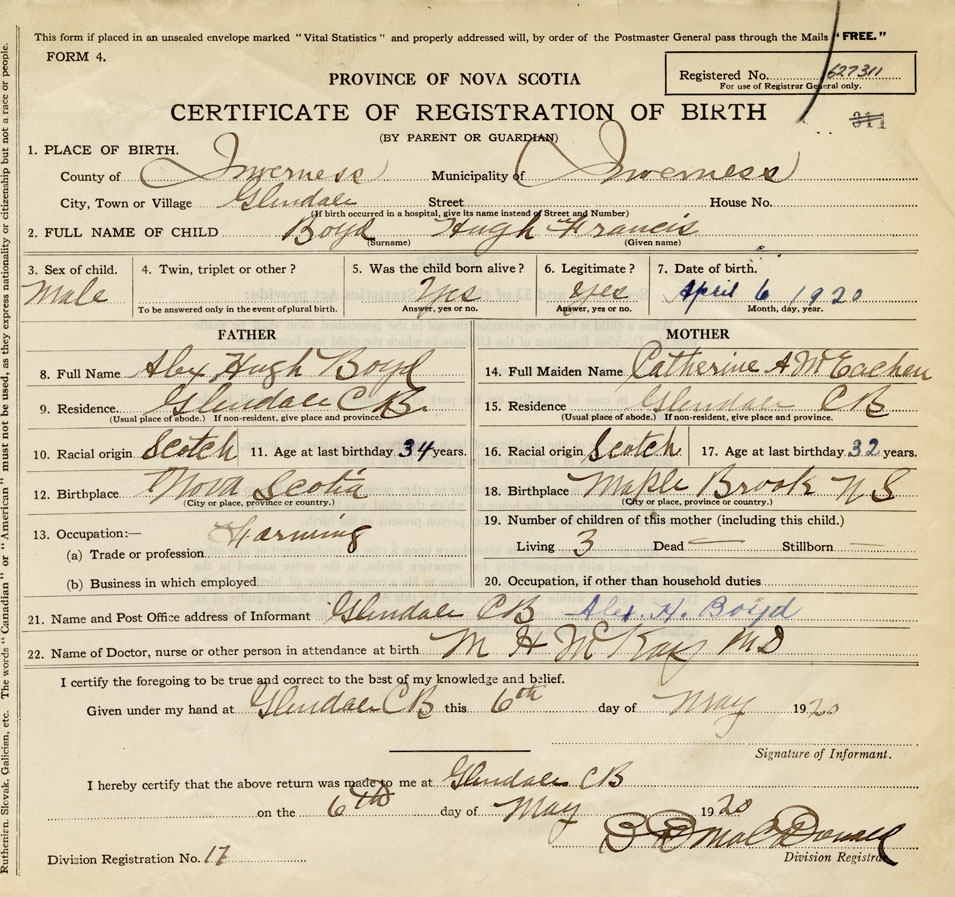 This form if placed in an unsealed envelope marked "Vital Statistics" and properly addressed will, by order of the Postmaster General pass through the Mails "FREE."
FORM 4.
Registered No. 627311
For use of Registrar General only.
PROVINCE OF NOVA SCOTIA
CERTIFICATE OF REGISTRATION OF BIRTH
311
(BY PARENT OR GUARDIAN)
1. PLACE OF BIRTH.
County of Inverness Municipality of Inverness
City, Town or Village Glendale Street House No.
(If birth occurred in a hospital, give its name instead of Street and Number)
2. FULL NAME OF CHILD Boyd Hugh Francis
(Surname) (Given name)
3. Sex of child. 4. Twin, triplet or other? 5. Was the child born alive? 6. Legitimate? 7. Date of birth.
Male Yes yes April 6 1920
To be answered only in the event of plural birth. Answer, yes or no. Answer, yes or no. Month, day, year.
FATHER MOTHER
8. Full Name Alex Hugh Boyd 14. Full Maiden Name Catherine A McEachen
9. Residence. Glendale C B. 15. Residence Glendale C B
(Usual place of abode.) If non-resident, give place and province. (Usual place of abode.) If non-resident, give place and province.
10. Racial origin Scotch 11. Age at last birthday 34 years. 16. Racial origin Scotch 17. Age at last birthday 32 years.
12. Birthplace Nova Scotia 18. Birthplace Maple Brook N S
(City or place, province or country.) (City or place, province or country.)
13. Occupation:— Farming 19. Number of children of this mother (including this child.)
(a) Trade or profession Living 3 Dead — Stillborn —
(b) Business in which employed 20. Occupation, if other than household duties
21. Name and Post Office address of Informant Glendale C B Alex. H. Boyd
22. Name of Doctor, nurse or other person in attendance at birth M H McKay M D
I certify the foregoing to be true and correct to the best of my knowledge and belief.
Given under my hand at Glendale C B this 6th day of May 1920
Signature of Informant.
I hereby certify that the above return was made to me at Glendale C B
on the 6th day of May 1920
D MacDonald
Division Registration No. 17 Division Registrar
Ruthenien, Slovak, Galician, etc. The words "Canadian" or "American" must not be used, as they express nationality or citizenship but not a race or people.